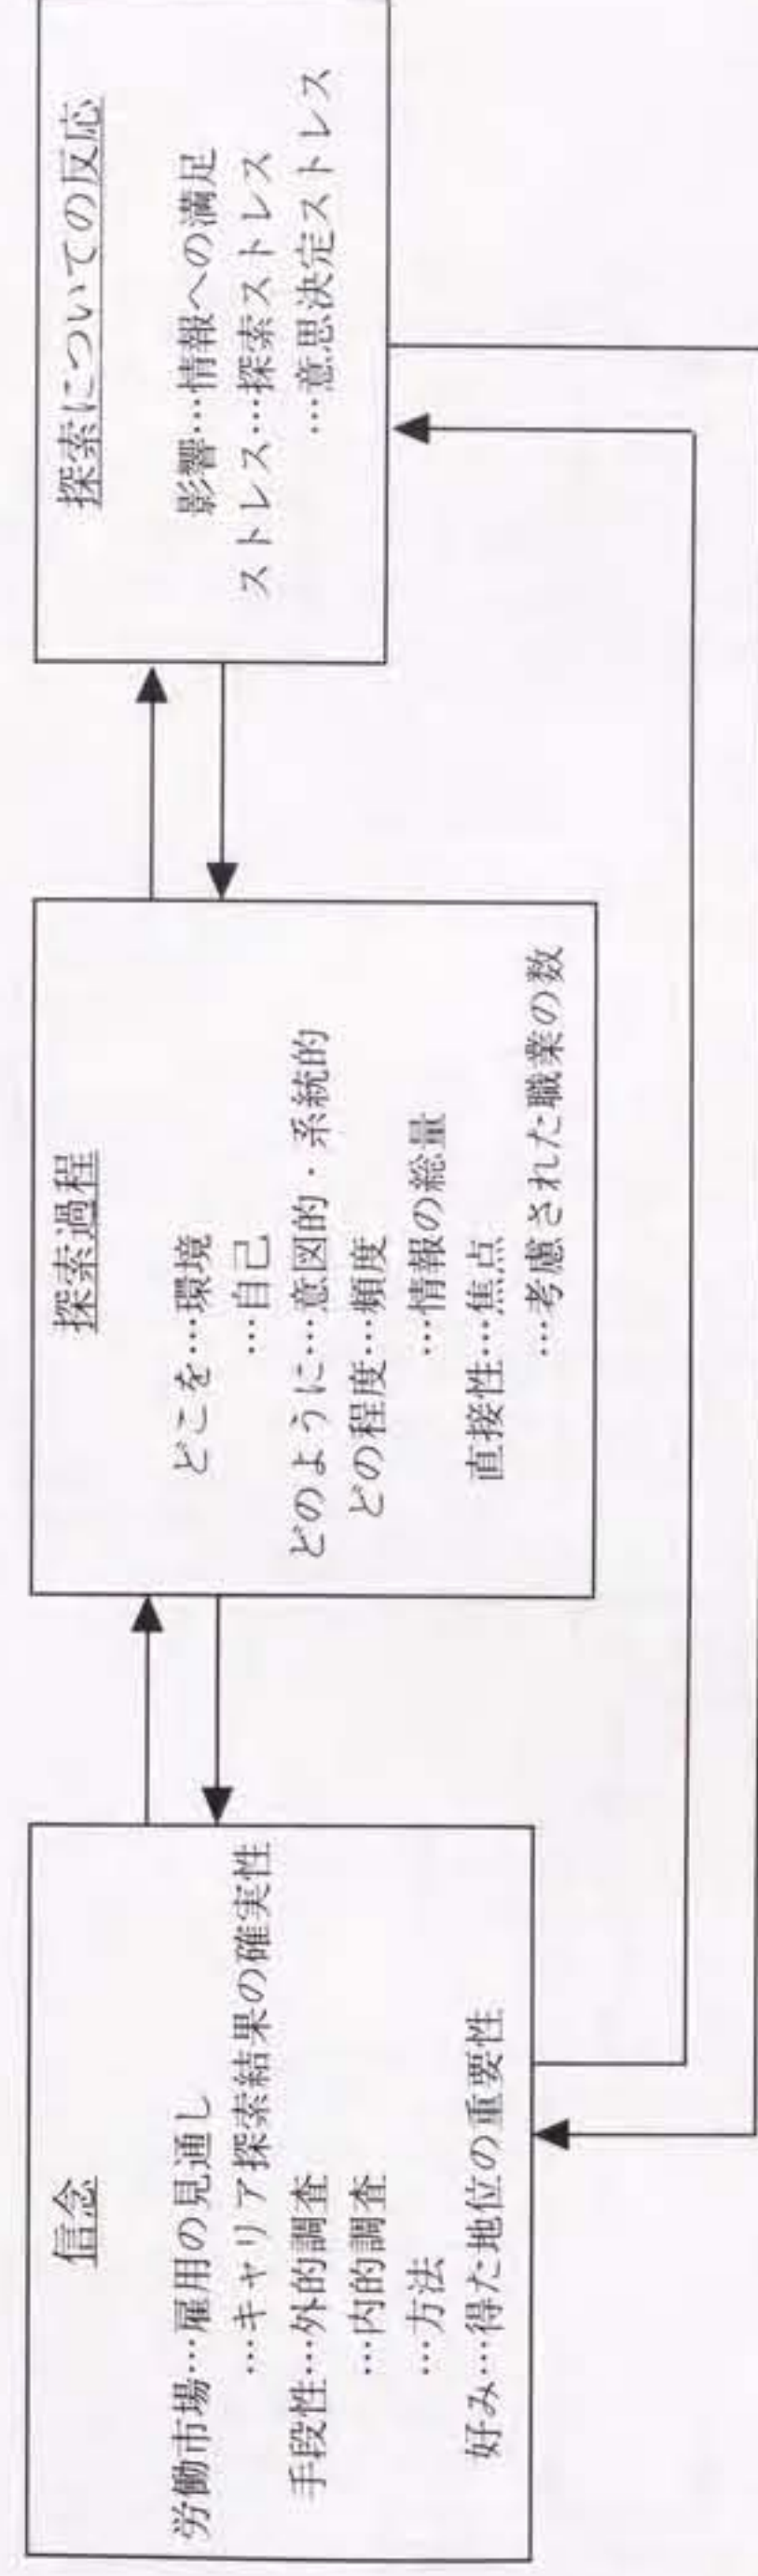 信念
労働市場…雇用の見通し
…キャリア探索結果の確実性
手段性…外的調査
…内的調査
…方法
好み…得た地位の重要性
探索過程
どこを…環境
…自己
どのように…意図的・系統的
どの程度…頻度
…情報の総量
直接性…焦点
…考慮された職業の数
探索についての反応
影響…情報への満足
ストレス…探索ストレス
…意思決定ストレス